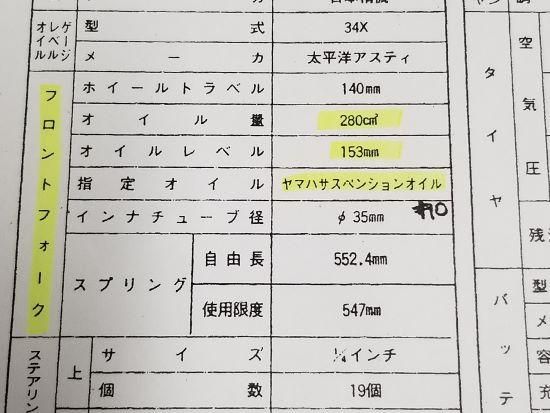 オイルレベルゲージ
型式 34X
メーカ 太平洋アスティ
フロントフォーク
ホイールトラベル 140mm
オイル量 280cm³
オイルレベル 153mm
指定オイル ヤマハサスペンションオイル
#10
インナチューブ径 φ35mm
スプリング
自由長 552.4mm
使用限度 547mm
ステアリン
上
サイズ ¼インチ
個数 19個
タイヤ
空気圧
残
バッテ
型
メ
容
充